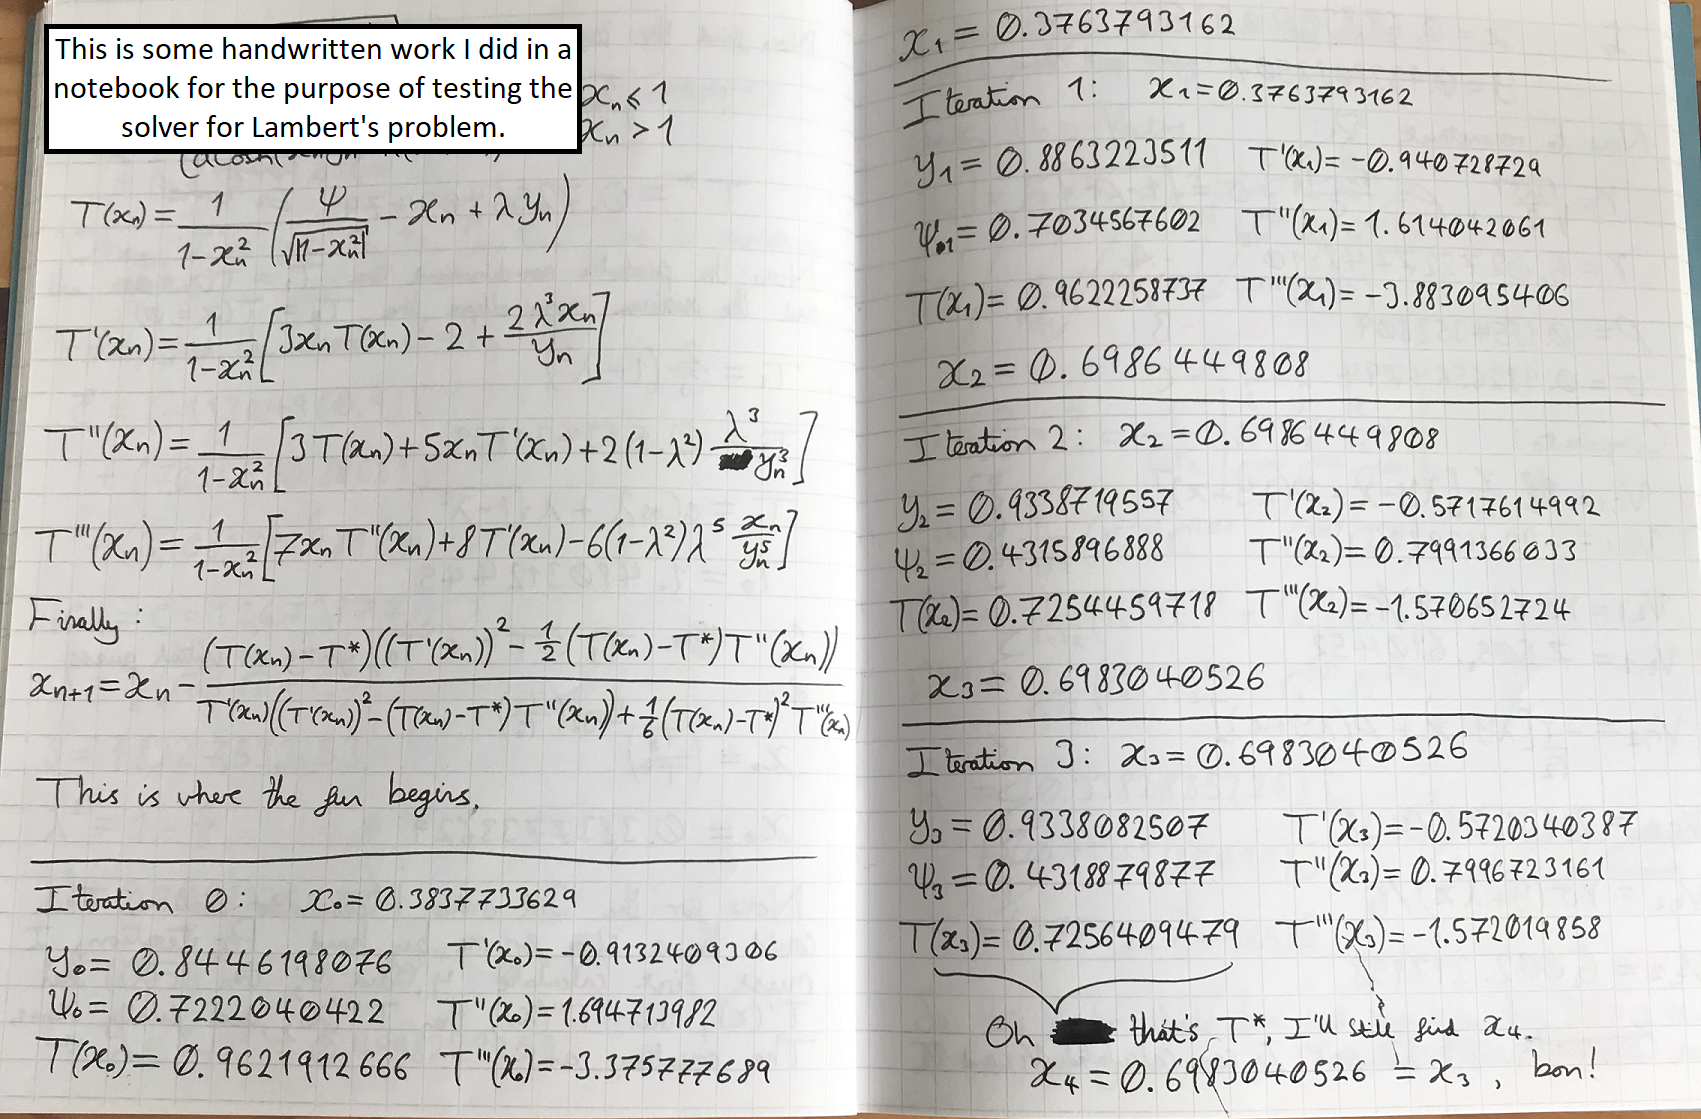 This is some handwritten work I did in a
notebook for the purpose of testing the
solver for Lambert's problem.
xₙ ≤ 1
xₙ > 1
T(xₙ) = 1/(1-xₙ²) (ψ/√|1-xₙ²| - xₙ + λyₙ)
T'(xₙ) = 1/(1-xₙ²) [3xₙT(xₙ) - 2 + 2λ³xₙ/yₙ]
T''(xₙ) = 1/(1-xₙ²) [3T(xₙ) + 5xₙT'(xₙ) + 2(1-λ²) λ³/yₙ³]
T'''(xₙ) = 1/(1-xₙ²) [7xₙT''(xₙ) + 8T'(xₙ) - 6(1-λ²)λ⁵ xₙ/yₙ⁵]
Finally:
xₙ₊₁ = xₙ - (T(xₙ)-T*)((T'(xₙ))² - ½(T(xₙ)-T*)T''(xₙ)) / T'(xₙ)((T'(xₙ))² - (T(xₙ)-T*)T''(xₙ)) + 1/6(T(xₙ)-T*)²T'''(xₙ)
This is where the fun begins.
Iteration 0: x₀ = 0.3837733629
y₀ = 0.8446198076 T'(x₀) = -0.9132409306
ψ₀ = 0.7222040422 T''(x₀) = 1.694713982
T(x₀) = 0.9621912666 T'''(x₀) = -3.375777689
x₁ = 0.3763793162
Iteration 1: x₁ = 0.3763793162
y₁ = 0.8863223511 T'(x₁) = -0.940728729
ψ₁ = 0.7034567602 T''(x₁) = 1.614042061
T(x₁) = 0.9622258737 T'''(x₁) = -3.883095406
x₂ = 0.6986449808
Iteration 2: x₂ = 0.6986449808
y₂ = 0.9338719557 T'(x₂) = -0.5717614992
ψ₂ = 0.4315896888 T''(x₂) = 0.7991366033
T(x₂) = 0.7254459718 T'''(x₂) = -1.570652724
x₃ = 0.6983040526
Iteration 3: x₃ = 0.6983040526
y₃ = 0.9338082507 T'(x₃) = -0.5720340387
ψ₃ = 0.4318879877 T''(x₃) = 0.7996723161
T(x₃) = 0.7256409479 T'''(x₃) = -1.572019858
Oh that's T*, I'll still find x₄.
x₄ = 0.6983040526 = x₃, bon!